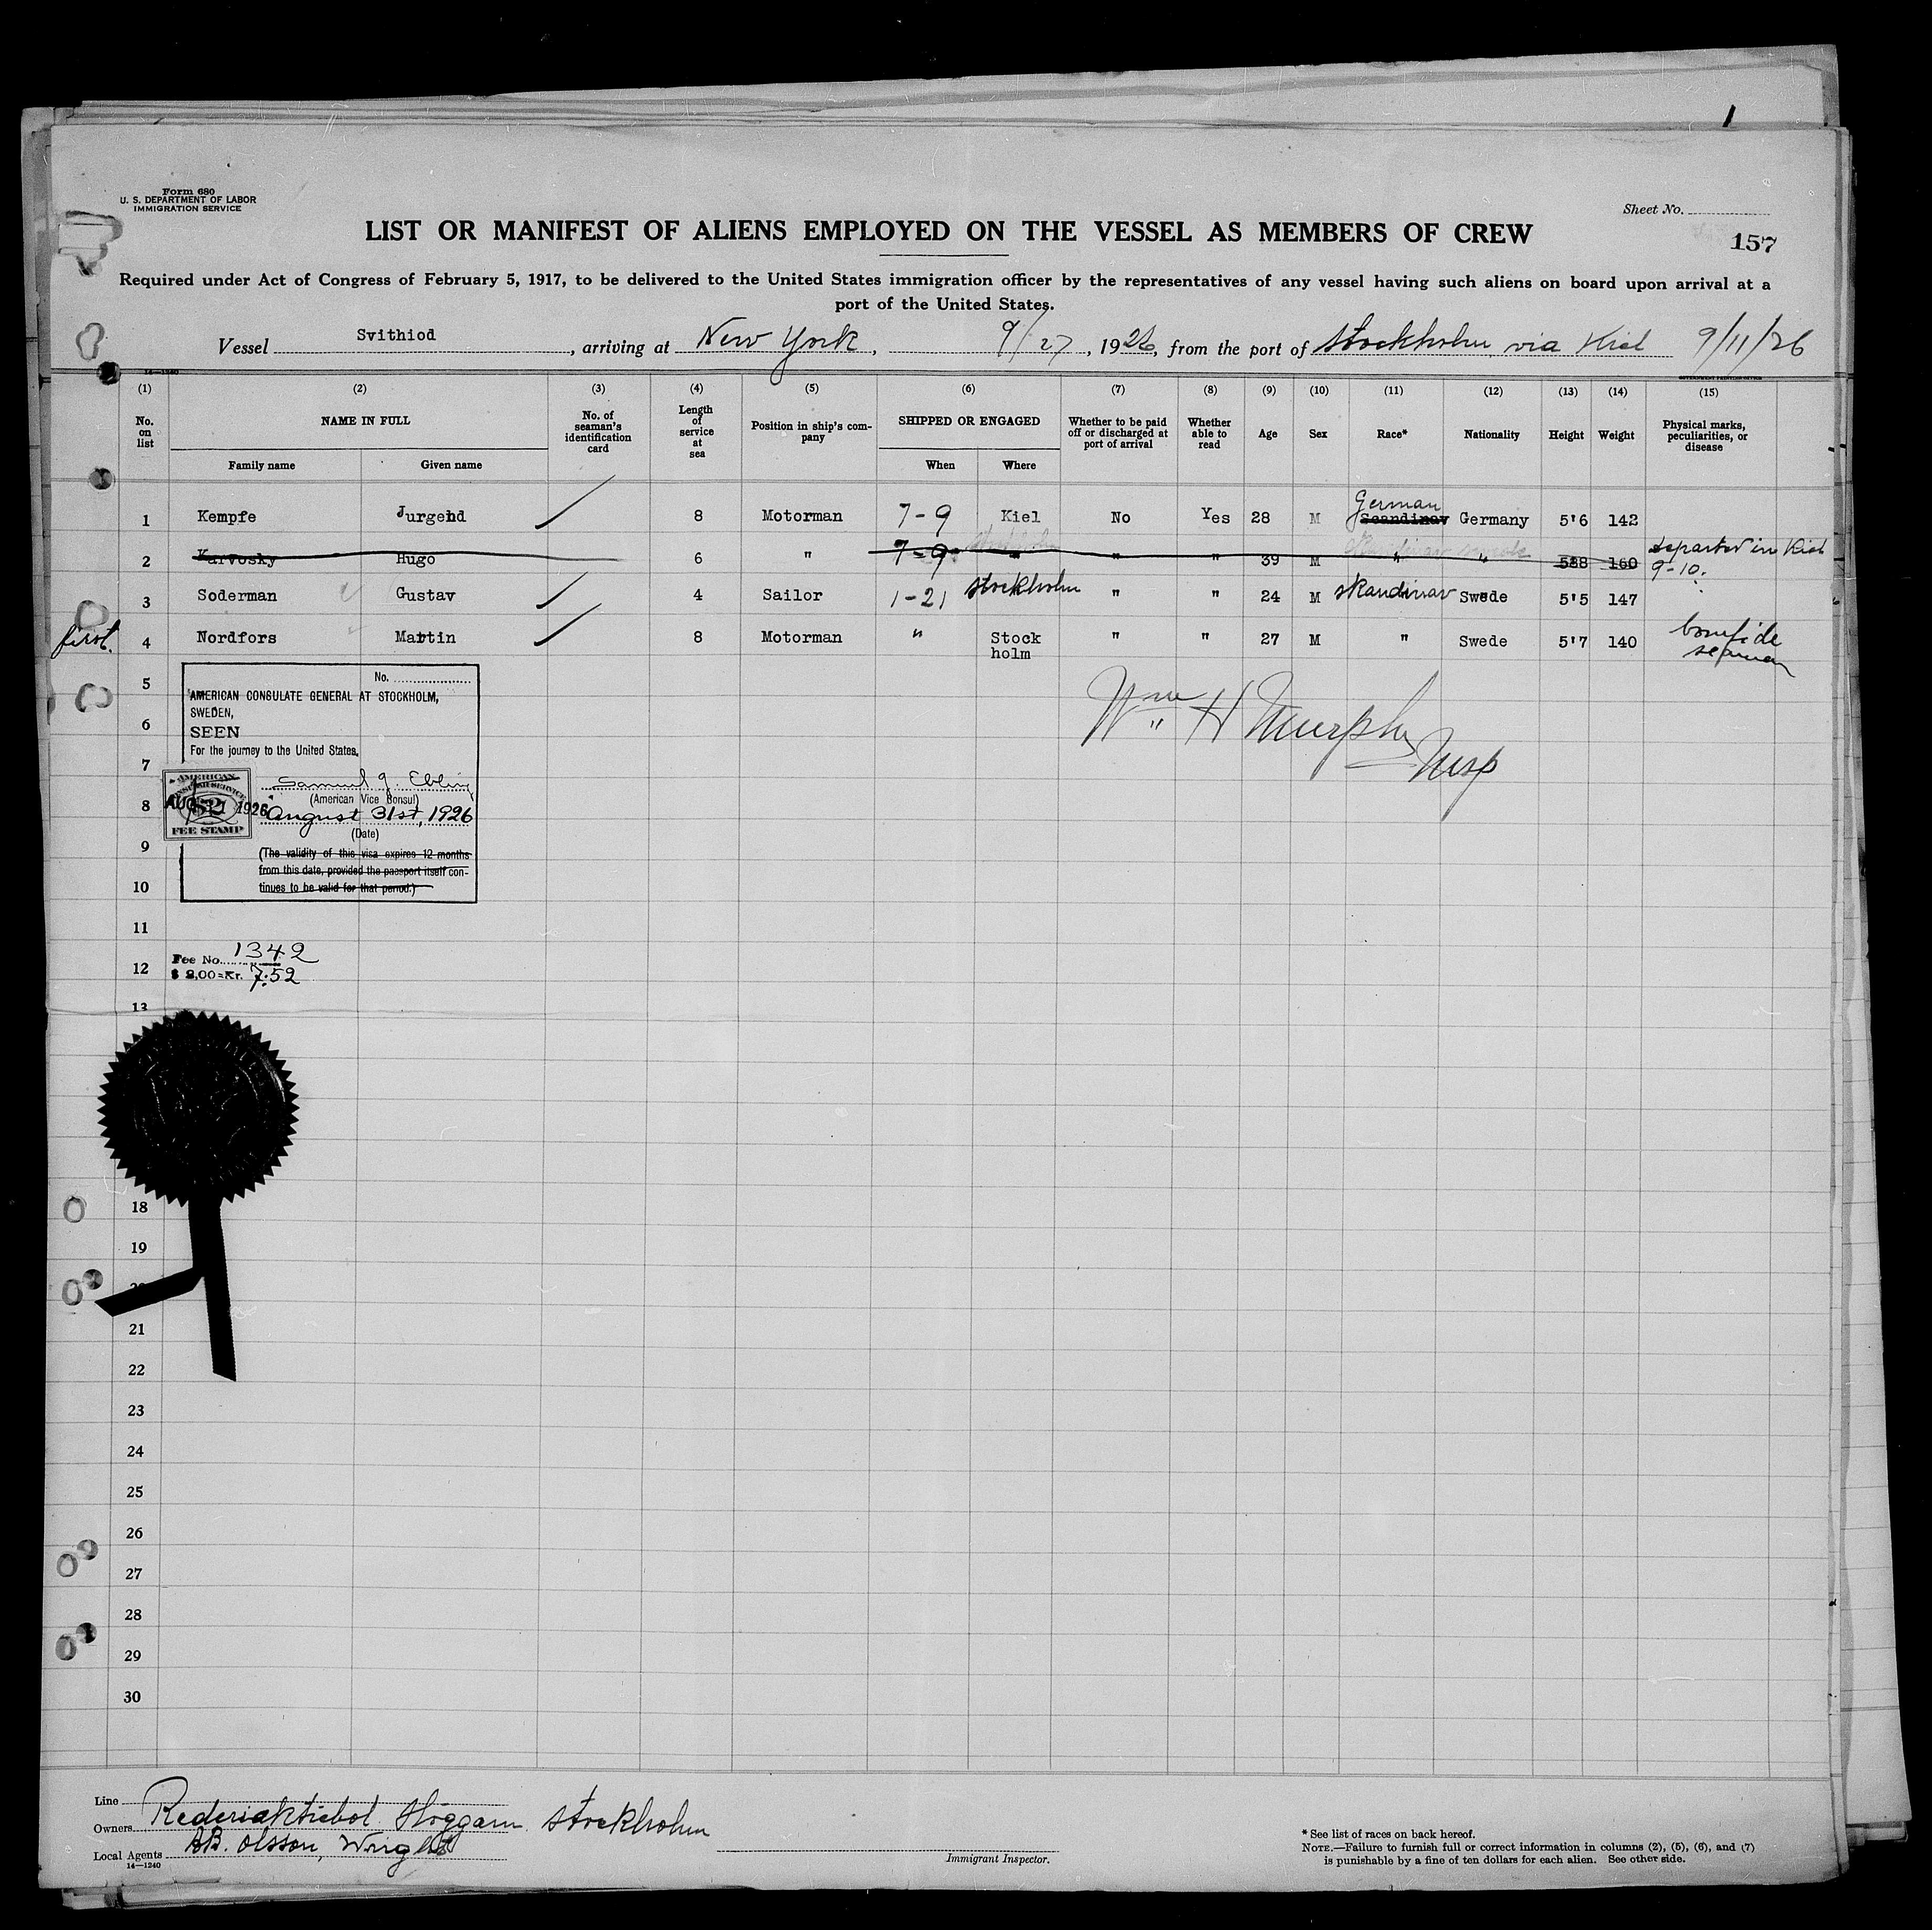 Form 680
U. S. DEPARTMENT OF LABOR
IMMIGRATION SERVICE
Sheet No.
LIST OR MANIFEST OF ALIENS EMPLOYED ON THE VESSEL AS MEMBERS OF CREW
157
Required under Act of Congress of February 5, 1917, to be delivered to the United States immigration officer by the representatives of any vessel having such aliens on board upon arrival at a
port of the United States.
Vessel Svithiod, arriving at New York, 9/27, 1926, from the port of Stockholm via Kiel 9/11/26
14—1240
(1) (2) (3) (4) (5) (6) (7) (8) (9) (10) (11) (12) (13) (14) (15)
No. on list NAME IN FULL No. of seaman's identification card Length of service at sea Position in ship's company SHIPPED OR ENGAGED Whether to be paid off or discharged at port of arrival Whether able to read Age Sex Race* Nationality Height Weight Physical marks, peculiarities, or disease
Family name Given name When Where
1 Kempfe Jurgend 8 Motorman 7-9 Kiel No Yes 28 M Scandinav German Germany 5'6 142
2 Karvosky Hugo 6 " 7-9 " " " 39 M " " 5'8 160 departed in Kiel 9-10.
3 Soderman Gustav 4 Sailor 1-21 Stockholm " " 24 M Skandinav Swede 5'5 147
first. 4 Nordfors Martin 8 Motorman " Stock holm " " 27 M " Swede 5'7 140 bonafide seaman
5
No.
AMERICAN CONSULATE GENERAL AT STOCKHOLM,
SWEDEN,
6
SEEN
For the journey to the United States.
Wm H Murphy
Insp
7
AMERICAN
CONSULAR SERVICE
$2
FEE STAMP
AUG 31 1926
Samuel J. Ebling
(American Vice Consul)
8
August 31st, 1926
(Date)
9
(The validity of this visa expires 12 months
from this date, provided the passport itself con-
10
tinues to be valid for that period.)
11
Fee No. 1342
12
$ 2,00=Kr. 7.52
13
18
19
20
21
22
23
24
25
26
27
28
29
30
Line
Owners Rederiaktiebol. Höggarn Stockholm
Local Agents BB. Olsson, Wright
14—1240
Immigrant Inspector.
* See list of races on back hereof.
NOTE.—Failure to furnish full or correct information in columns (2), (5), (6), and (7)
is punishable by a fine of ten dollars for each alien. See other side.